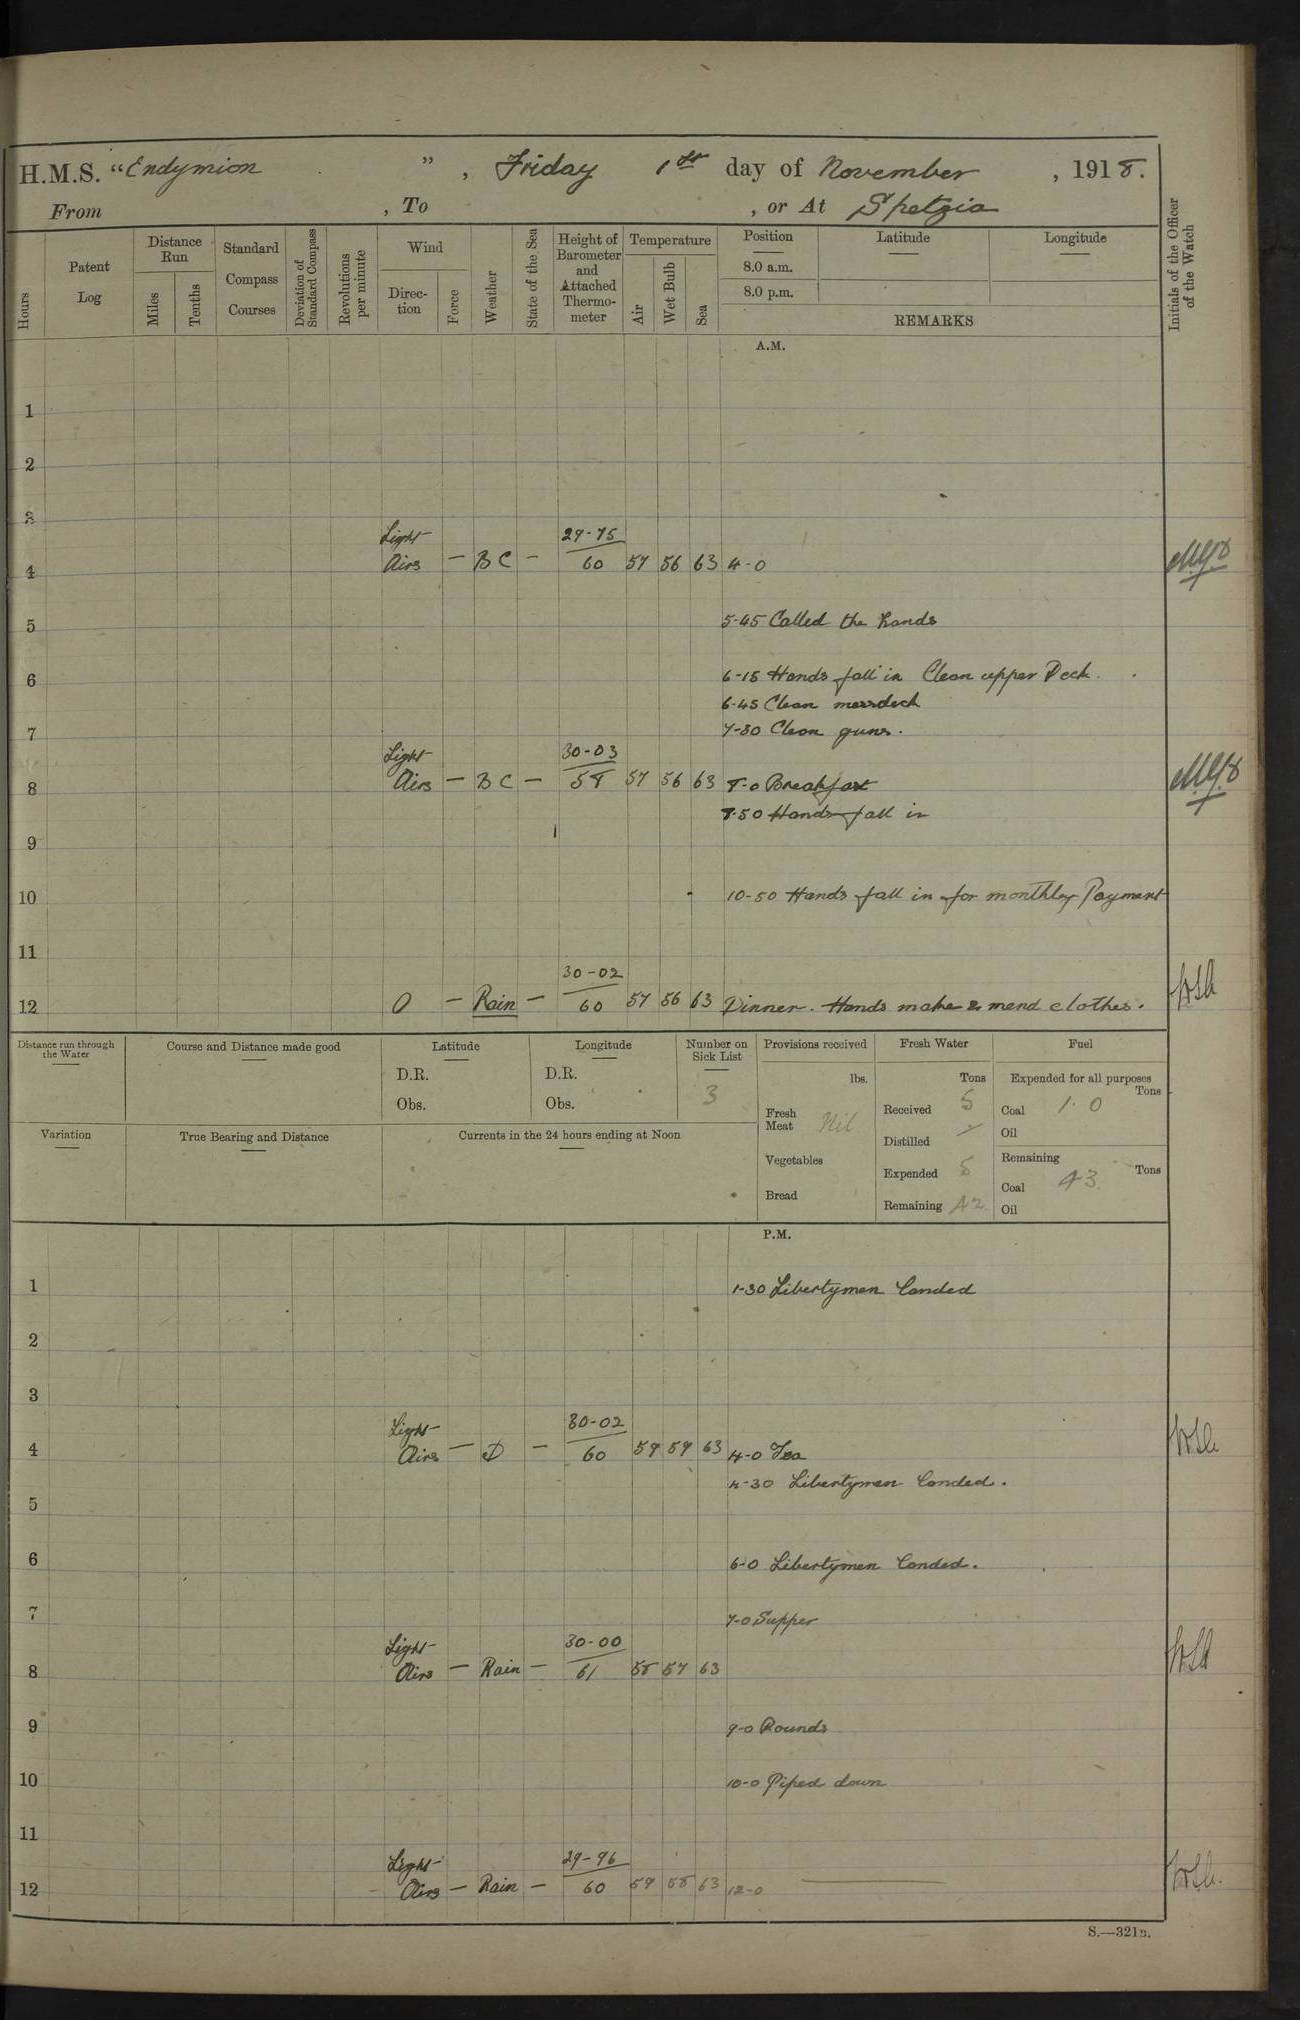 H.M.S. "Endymion", Friday 1st day of November, 1918.
From , To , or At Spetzia
Hours
Patent Log
Distance Run
Miles
Tenths
Standard Compass Courses
Deviation of Standard Compass
Revolutions per minute
Wind
Direction
Force
Weather
State of the Sea
Height of Barometer and Attached Thermometer
Temperature
Air
Wet Bulb
Sea
Position
8.0 a.m.
8.0 p.m.
Latitude
Longitude
REMARKS
Initials of the Officer of the Watch
A.M.
1
2
3
Light 29-75
4 Airs — BC — 60 57 56 63 4-0
5 5-45 Called the hands
6 6-15 Hands fall in Clean upper Deck.
6-45 Clean messdeck
7 7-30 Clean guns.
Light 30-03
8 Airs — BC — 58 57 56 63 8-0 Breakfast
8-50 Hands fall in
9
10 10-50 Hands fall in for monthly Payment
11
30-02
12 0 — Rain — 60 57 56 63 Dinner. Hands make & mend clothes.
Distance run through the Water
Course and Distance made good
Latitude
D.R.
Obs.
Longitude
D.R.
Obs.
Number on Sick List
3
Provisions received
lbs.
Fresh Meat Nil
Vegetables
Bread
Fresh Water
Tons
Received 5
Distilled
Expended 5
Remaining 42
Fuel
Expended for all purposes
Tons
Coal 1·0
Oil
Remaining
Tons
Coal 43
Oil
Variation
True Bearing and Distance
Currents in the 24 hours ending at Noon
P.M.
1 1-30 Libertymen landed
2
3
Light 30-02
4 Airs — D — 60 59 57 63 4-0 Tea
4-30 Libertymen landed.
5
6 6-0 Libertymen landed.
7 7-0 Supper
Light 30-00
8 Airs — Rain — 61 58 57 63
9 9-0 Rounds
10 10-0 Piped down
11
Light 29-96
12 Airs — Rain — 60 59 58 63 12-0
S.—321B.